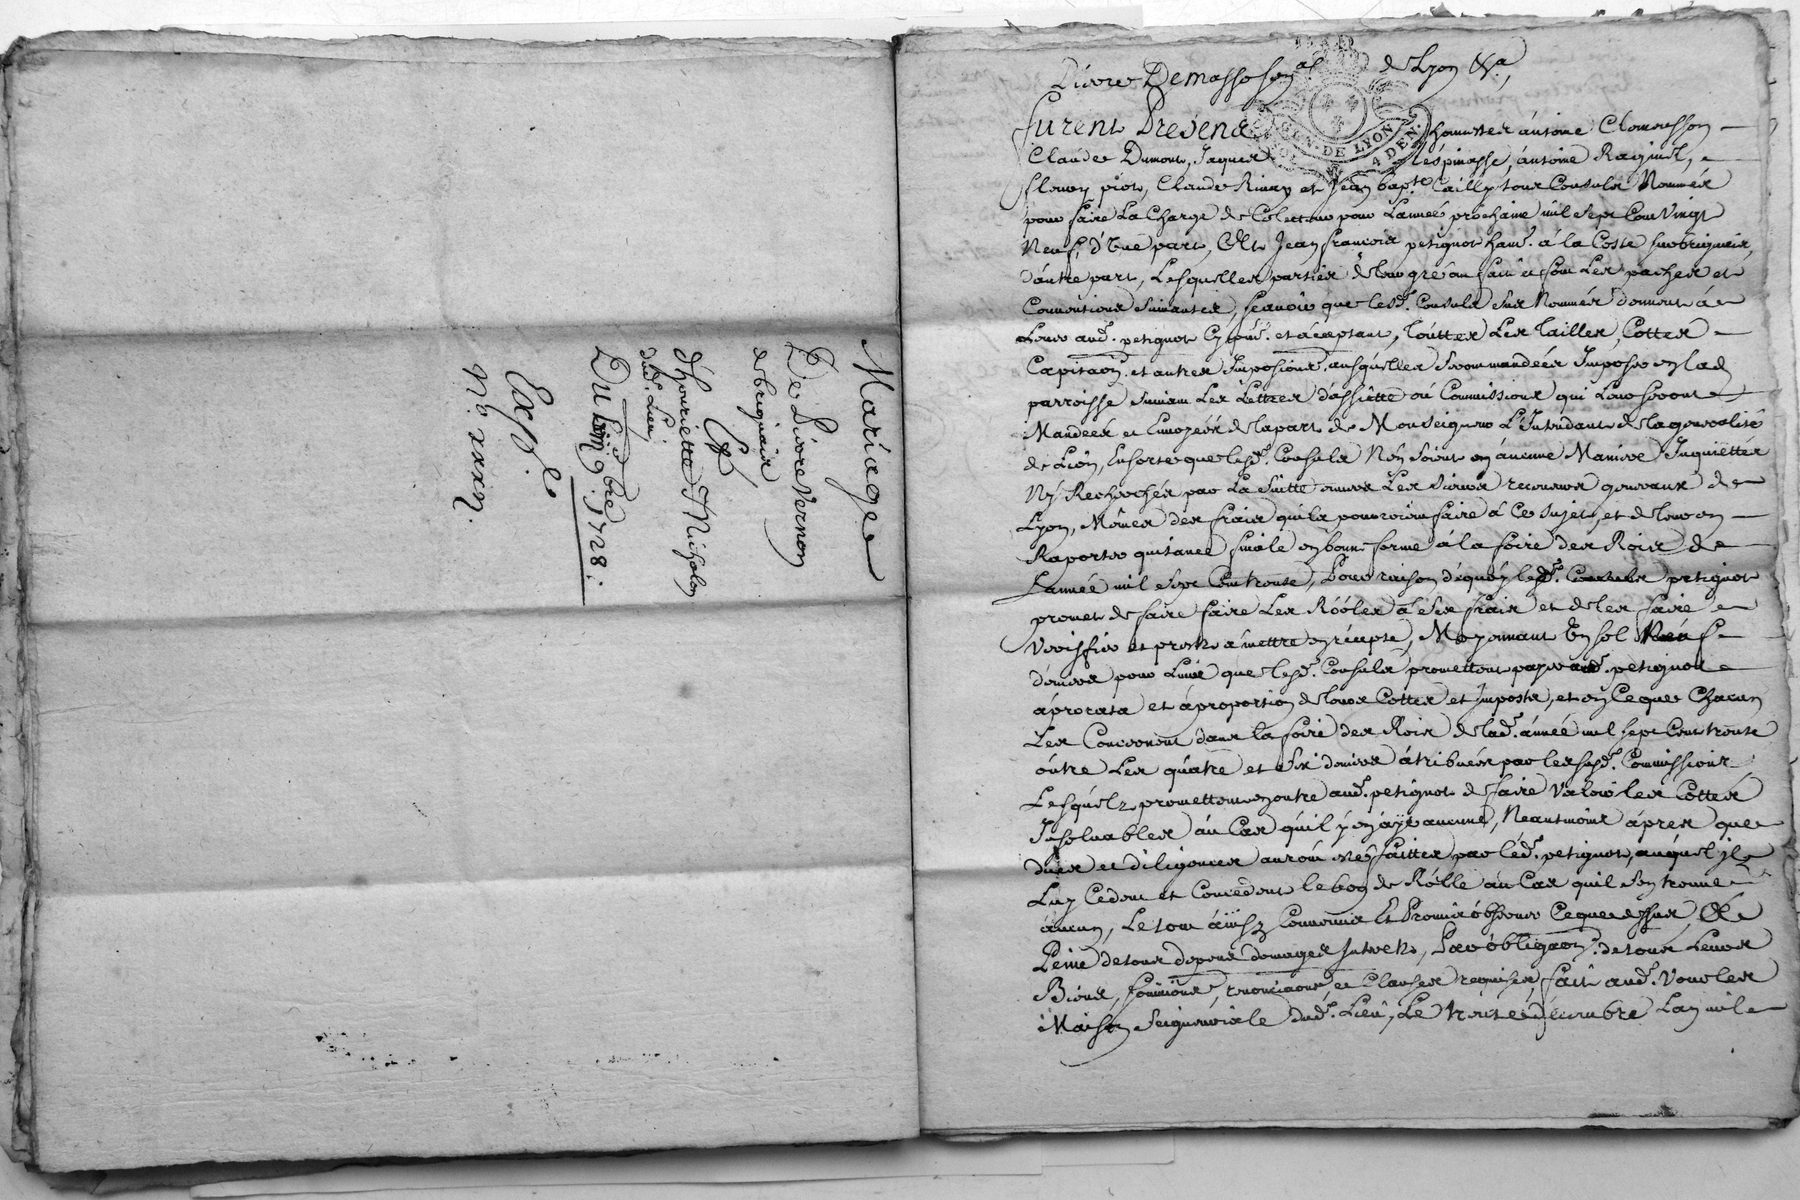 Mariage
De Pierre Vernon
de brignais
Et
d'henriette Micholon
dud. Lieu
Du 9bre 1728.
Exp.
No. xxxiii.
de Lyon &a,
GEN. DE LYON
4 DEN.
furent Presens honnestes ántoine
Claude Dumont, Jaques léspinasse, ántoine Raginel,
fleury piot, Claude Rimay et Jean bapte. Cailly tous Consuls Nommés
pour faire La Charge de Colecteur pour Lannée prochaine mil Sept Cent Vingt
Neuf, d'Une part, Et Jean francois petignot á la Coste
d'autre part, Lesquelles parties de leur gré ont fait et font Les paches et
Conventions Suivantes, scavoir que lesd. Consuls Sus Nommés donnent á
Leur aud. petignot Cy pnt. et ácceptant, toûttes Les tailles, Cottes
Capitaon. et autres Imposions. ausquelles Seront mandées Imposer en lad.
parroisse Suivant Les Lettres d'assiette oú Commissions qui Leur Seront
Mandées et Envoyées de la part de Monseigneur L'Intendant de la generalité
de Lion, En sorte que lesd. Consuls N'en Soient en áucune Maniere Inquiettés
Ny Recherchés par La Suitte envers Les Sieurs receveurs generaux de
Lyon, Mémes des frais qu'ils pourroient faire á Ce Sujet, et de leur en
Raporter quitance finale en bonne forme á la foire des Rois de
Lannée mil Sept Cent trente, Pour raison dequoy led. petignot
promet de faire faire Les Róóles á Ses frais et de les faire
Veriffier et prests a mettre en récepte, Moyennant Un Sol Neuf
deniers pour Livre que lesd. Consuls promettent payer aud. petignot
áprorata et áproportion de leurs Cottes et Imposts, et en Ce que Chacun
Les Concernent dans la foire des Rois de lad. ánnée mil Sept Cent trente
óutre Les quatre et Six deniers átribués par les susd. Commissions
Lesquels promettent en outre aud. petignot de faire Valoir les Cottes
Insolvables áu Cas qu'il y en aye aucune, Neantmoins ápres que
dues et diligences auront étés faittes par léd. petignot, auquel ils
Luy Cedent et Concedent le bon de Rólle áu Cas quil S'en trouve
áucun, Le tout áinsy Convenu Et Promis óbserver Ce que dessus, á
Peine de tous depens domages Interets, Par óbligaon. de tous Leurs
Biens, renonciaons. et Clauses requises, fait aud. Vourles
Maison Seigneuriale dud. Lieu, Le trente décembre Lan mil